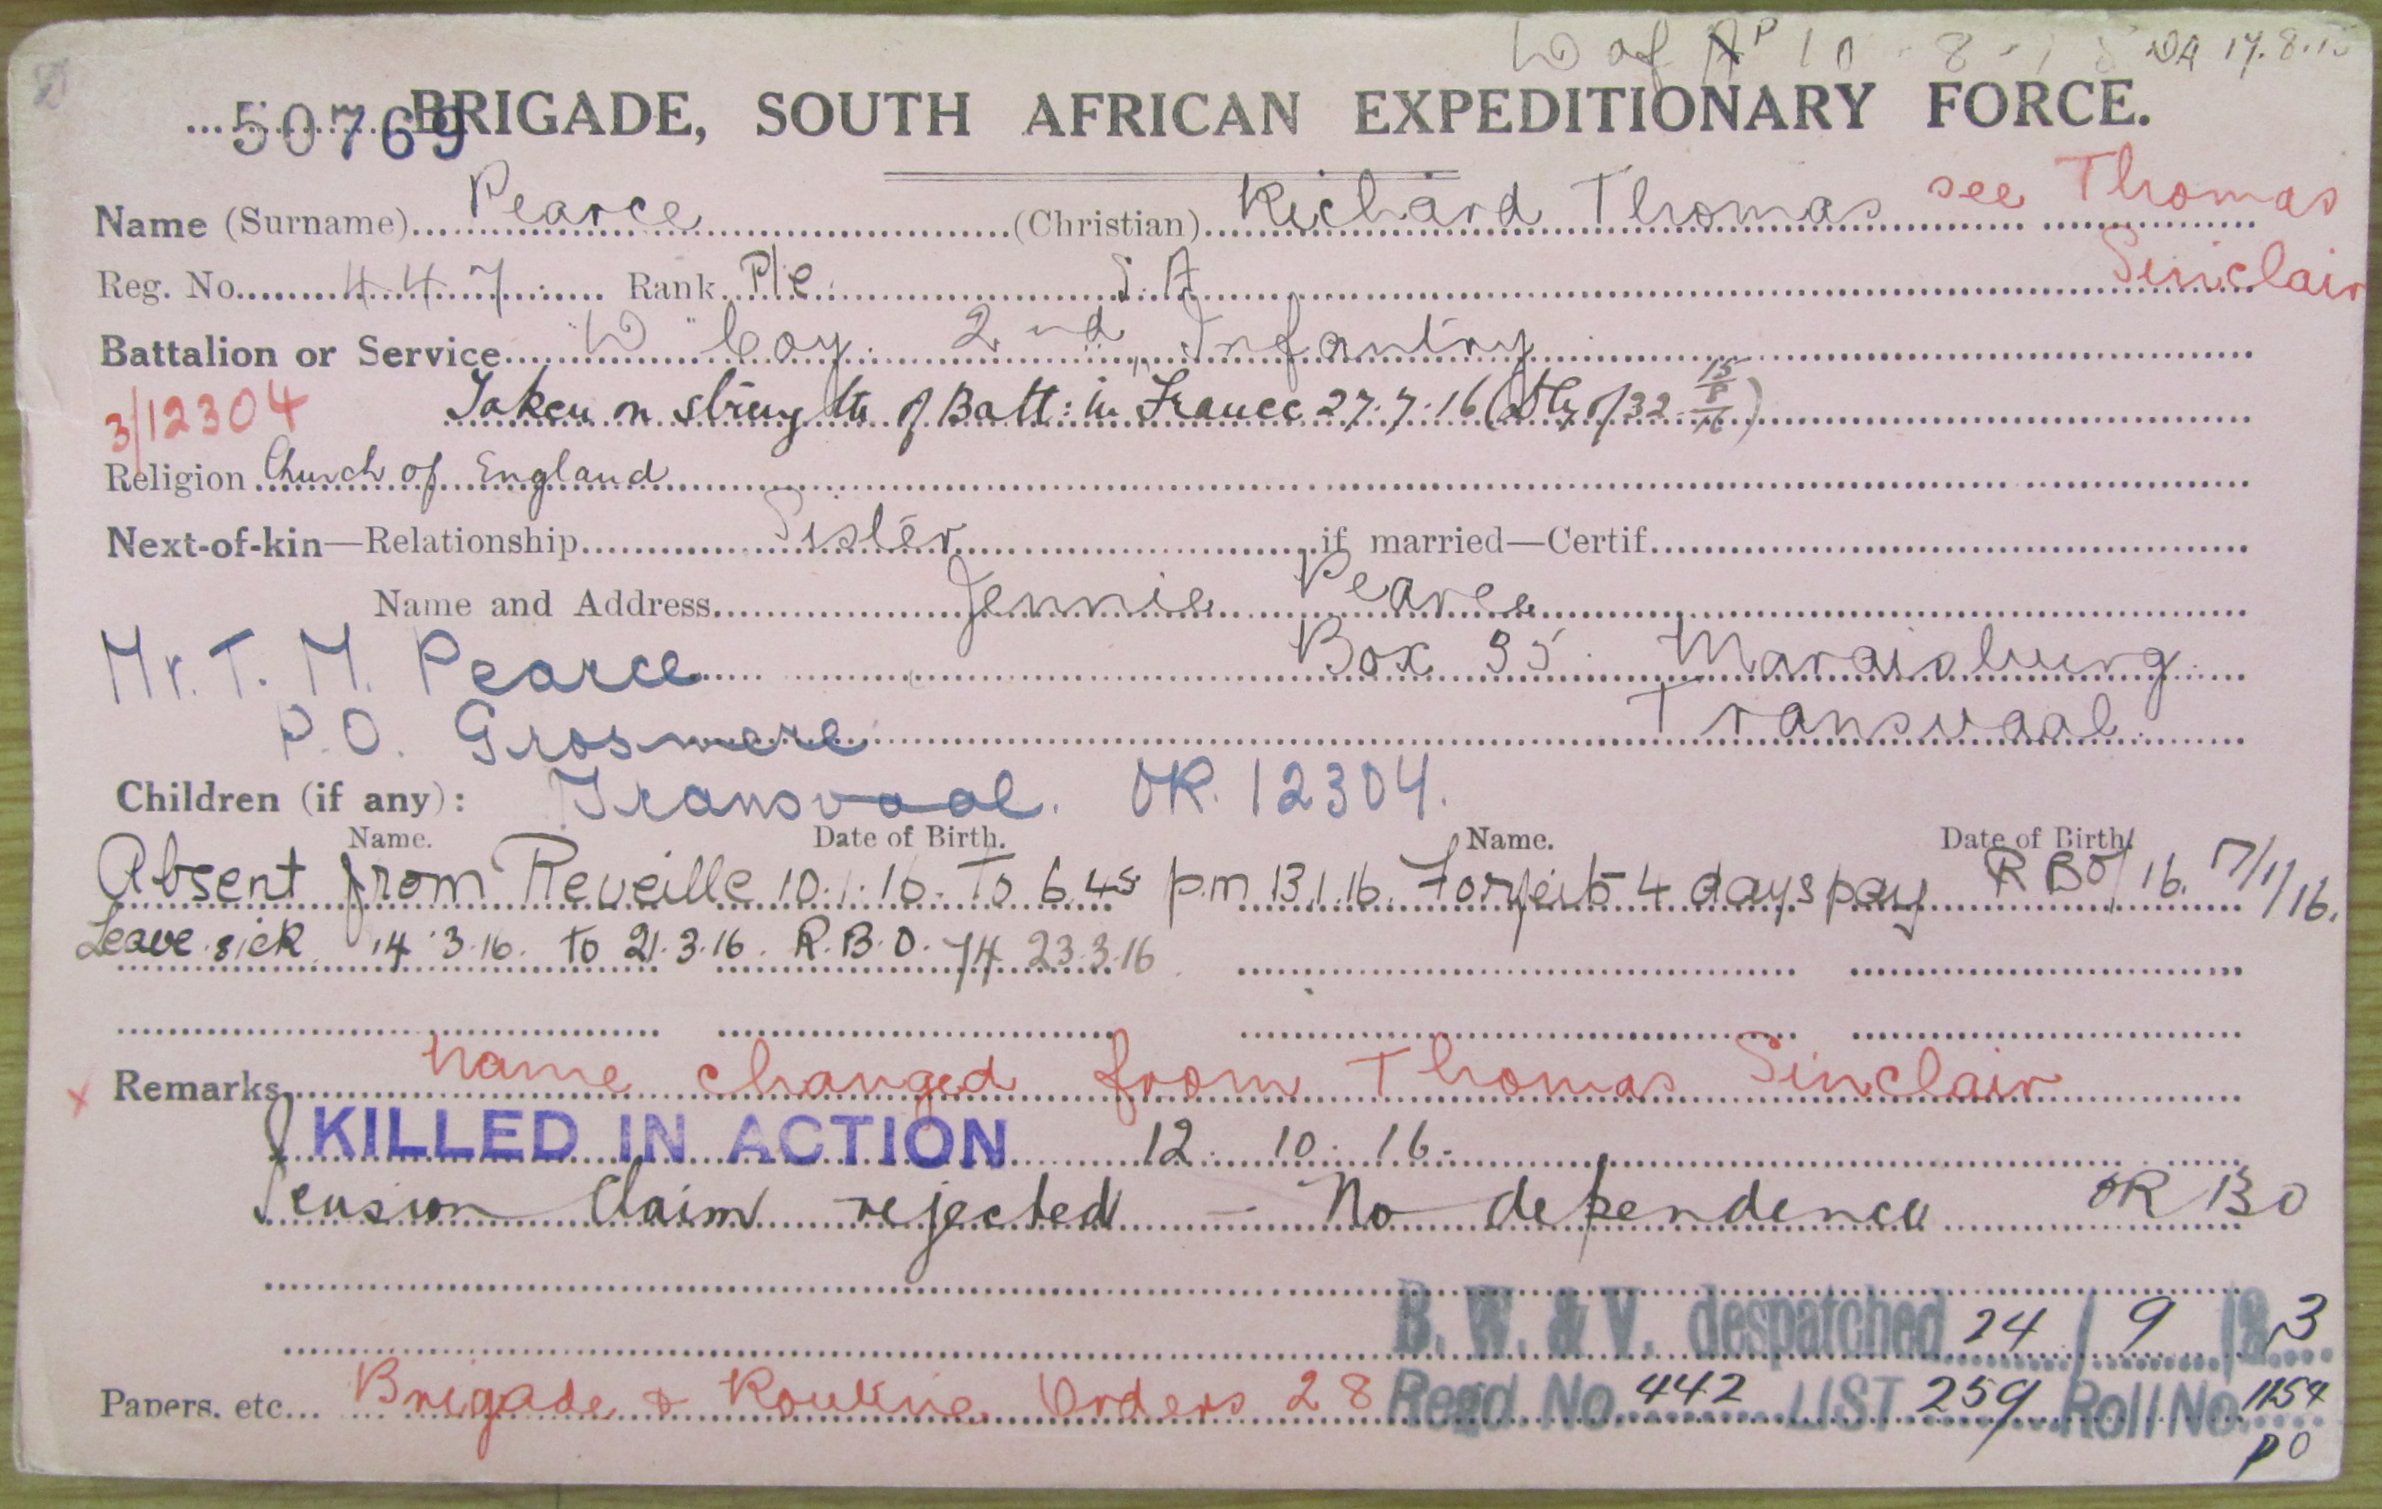 W of 10 - 8 - 1 DA 17.8.15
50769 BRIGADE, SOUTH AFRICAN EXPEDITIONARY FORCE.
Name (Surname) Pearce (Christian) Richard Thomas see Thomas Sinclair
Reg. No. 447 Rank Pte S.A
Battalion or Service "D" Coy. 2nd Infantry
3/12304 Taken on strength of Batt: in France 27.7.16 (32 15/8/16)
Religion Church of England
Next-of-kin—Relationship Sister if married—Certif.
Name and Address Jennie Pearce
Mr. T. M. Pearce Box 35 Maraisburg
P.O. Grosmere Transvaal
Children (if any): Transvaal. OR. 12304.
Name. Date of Birth. Name. Date of Birth.
Absent from Reveille 10.1.16. To 6.45 p.m 13.1.16. Forfeits 4 days pay R B O / 16. 17/1/16.
Leave sick 14.3.16. to 21.3.16. R.B.O. 74 23.3.16
x Remarks Name changed from Thomas Sinclair
KILLED IN ACTION 12. 10. 16.
Pension Claim rejected - No dependence OR BO
B. W. & V. despatched 24/9/23
Papers, etc. Brigade & Routine Orders 28 Regd. No. 442 LIST 259 Roll No. 1154